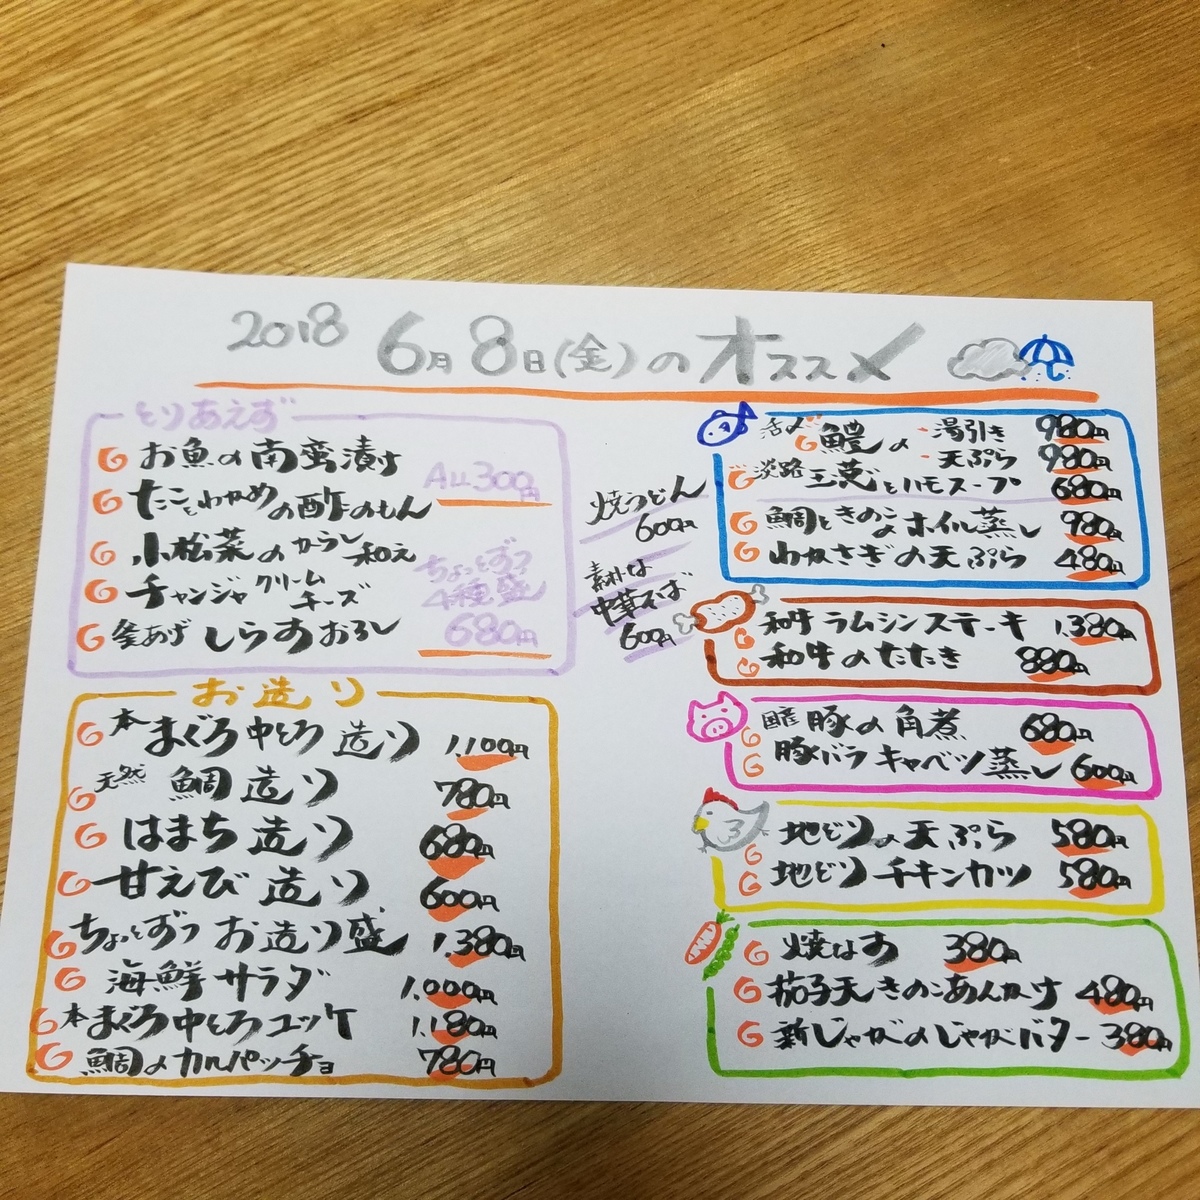 2018 6月8日(金)のオススメ
とりあえず
お魚の南蛮漬け
たことわかめの酢のもん
小松菜のからし和え
チャンジャクリームチーズ
釜あげしらすおろし
ALL300円
ちょっとずつ
4種盛
680円
お造り
本まぐろ中とろ造り 1,100円
天然 鯛造り 780円
はまち造り 680円
甘えび造り 600円
ちょっとずつお造り盛 1,380円
海鮮サラダ 1,000円
本まぐろ中とろユッケ 1,180円
鯛のカルパッチョ 780円
焼うどん
600円
素朴な
中華そば
600円
活〆鱧の・湯引き 980円
・天ぷら 980円
淡路玉葱とハモスープ 680円
鯛ときのこのホイル蒸し 980円
わかさぎの天ぷら 480円
和牛ラムシンステーキ 1,380円
和牛のたたき 880円
国産豚の角煮 680円
豚バラキャベツ蒸し 600円
地どりの天ぷら 580円
地どりチキンカツ 580円
焼なす 380円
茄子天きのこあんかけ 480円
新じゃがのじゃがバター 380円